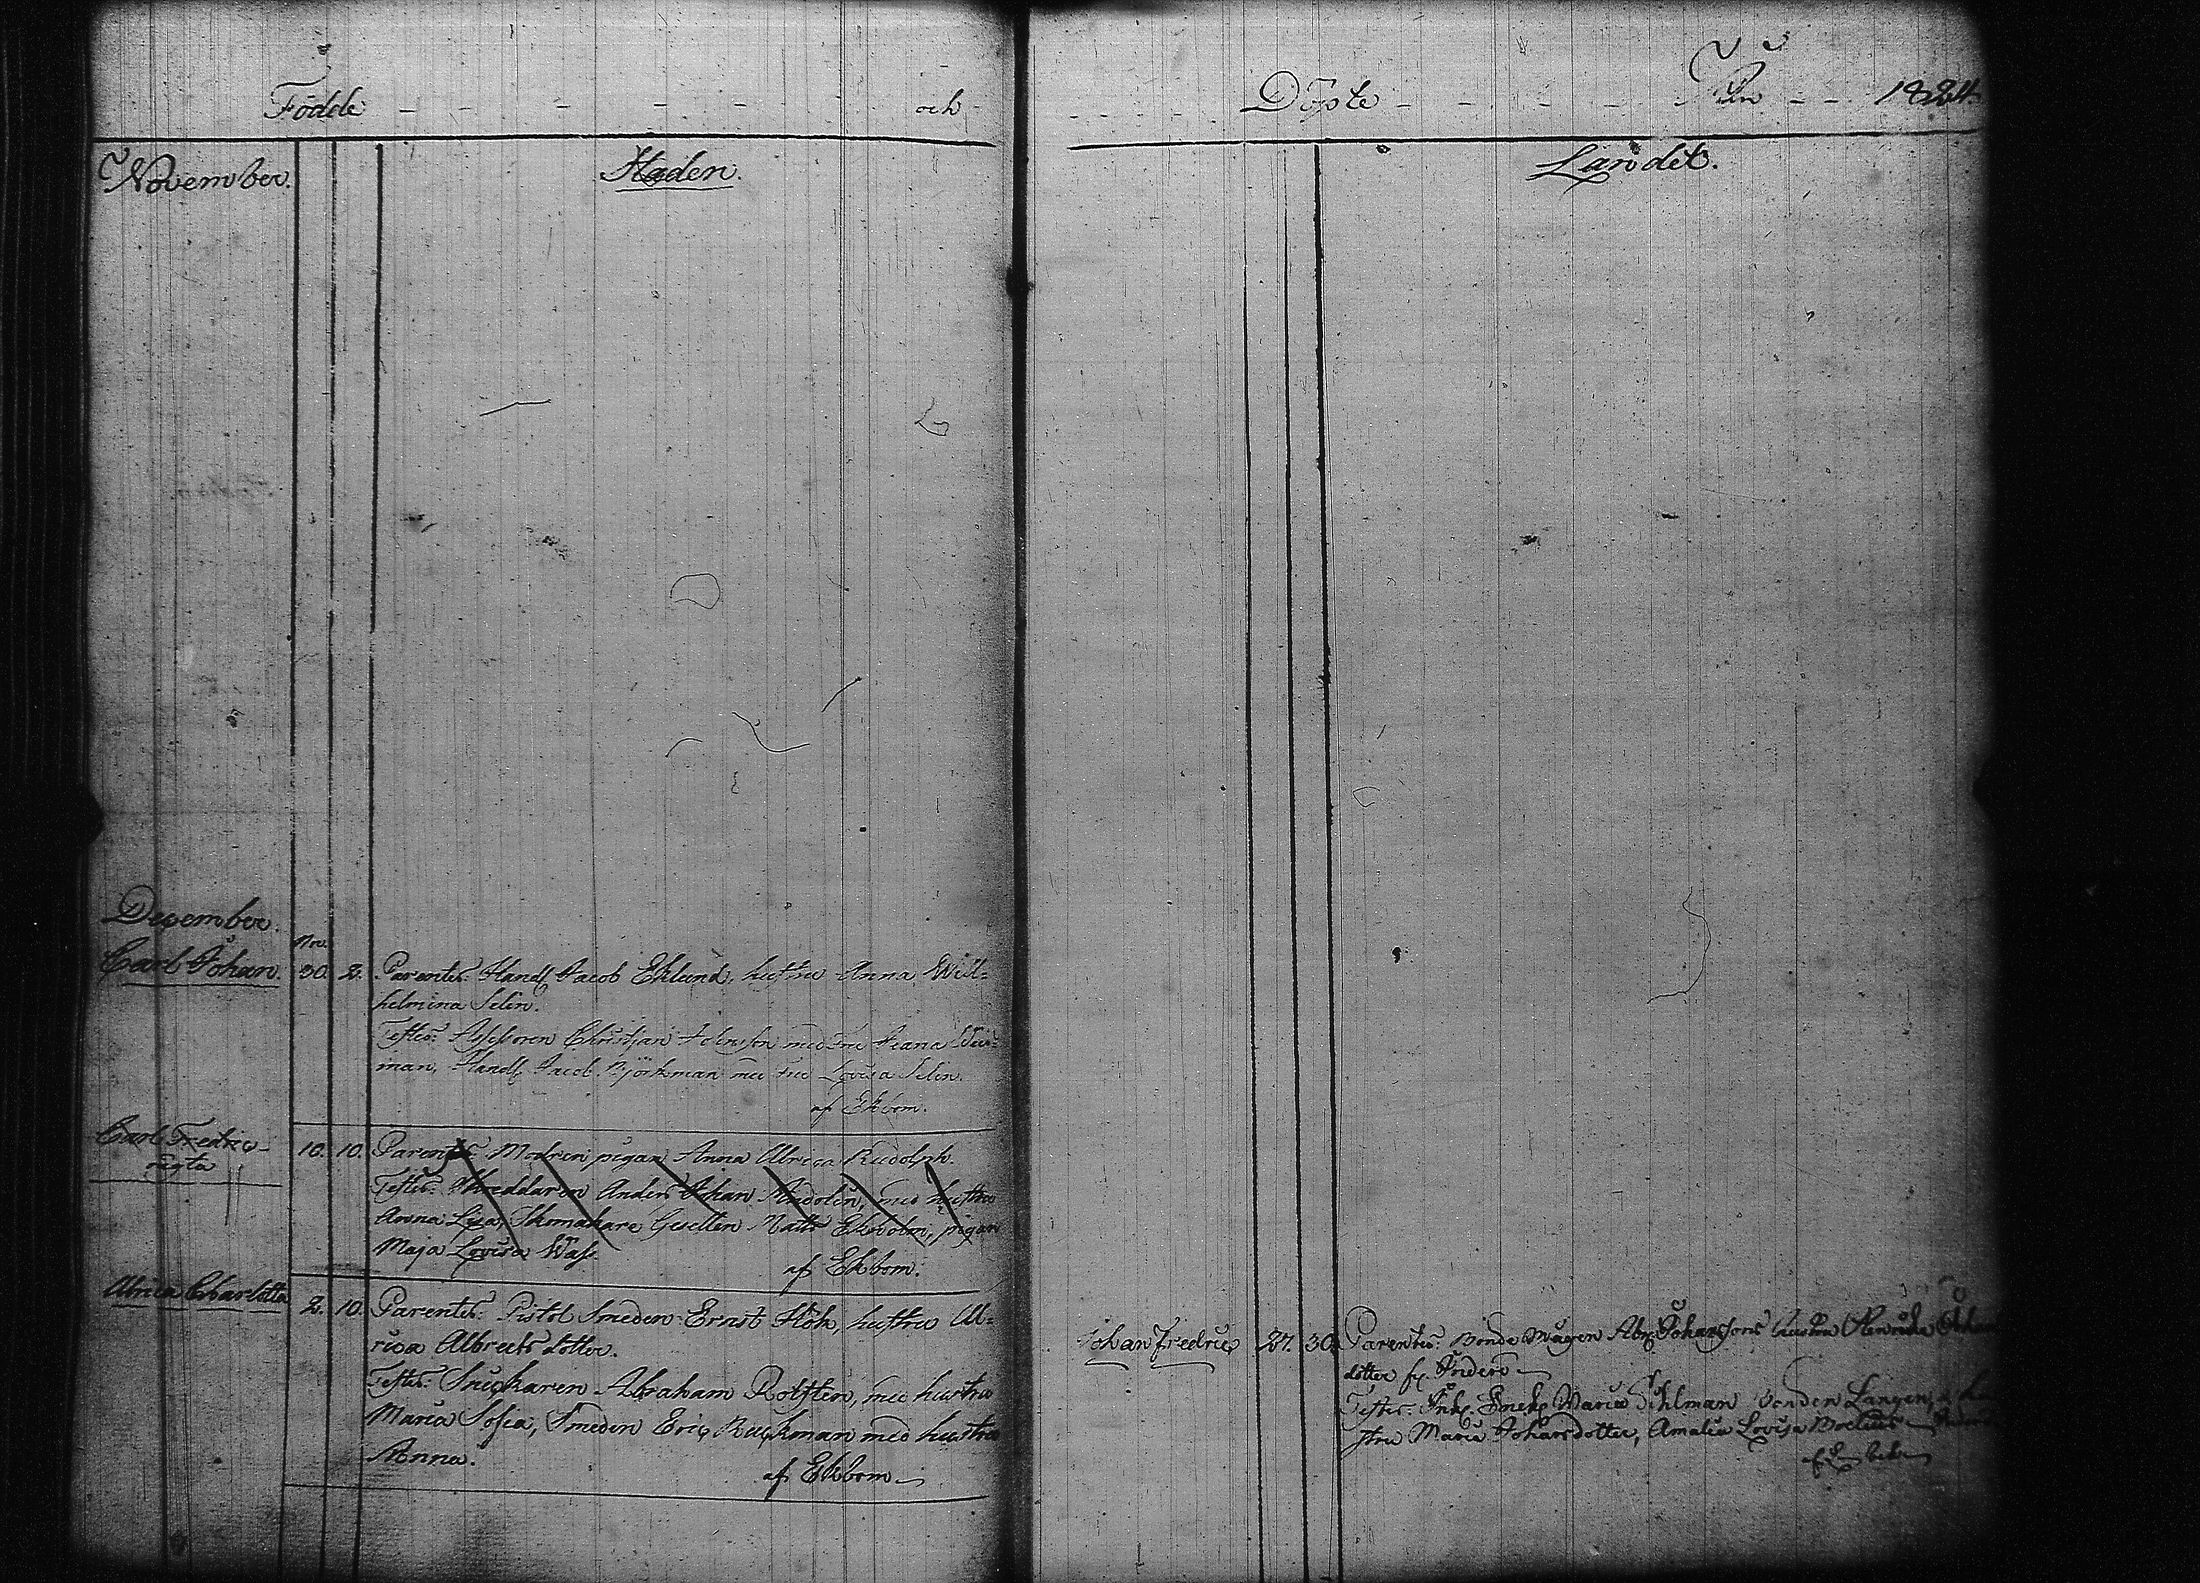 Födde - - - - - och
November.
Staden.
December.
Carl Johan.
Nov.
30. 2. Parentes. Handl. Jacob Eklund, hustru Anna Wil=
helmina Selin.
Testes. Assessoren Christian Johnson med Fru
man, Handl. Jacob Björkman med Fru Lovisa Selin.
af Ekbom.
Carl Fredric
oägta
10. 10. Parentes. Modren pigan Anna Ulrica Rudolph.
Testes. Skreddaren Anders Johan med hustru
Anna Lisa, Skomakare Gesellen Matts Ekholm, pigan
Maja Lovisa Wass.
af Ekbom.
Ulrica Charlotta
2. 10. Parentes. Pistol Smeden Ernst Hök, hustru Ul=
rica Albrects dotter.
Testes. Snickaren Abraham Rotsten, med hustru
Maria Sofia, Smeden Eric Ruckman med hustru
Anna.
af Ekbom
Döpte - - - - - År - - 1824.
Landet.
Johan Fredric 27. 30. Parentes. Bonde Mågen Abr. Johanssons hustru
dotter fr.
Testes. Maria Öhlman
stru Maria Johansdotter, Amalia Lovisa